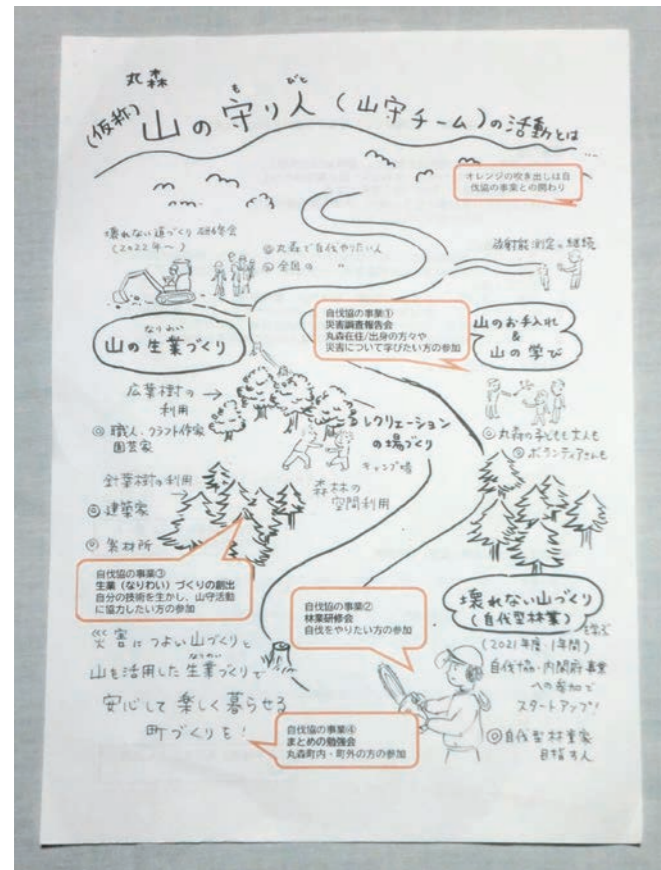 丸森
もりびと
(仮称)山の守り人(山守チーム)の活動とは…
オレンジの吹き出しは自
伐協の事業との関わり
壊れない道づくり研修会
(2022年〜)
◎丸森で自伐やりたい人
◎全国の 〃
放射能測定の継続
自伐協の事業①
災害調査報告会
丸森在住/出身の方々や
災害について学びたい方の参加
なりわい
山の生業づくり
山のお手入れ
&
山の学び
広葉樹の
利用
◎職人、クラフト作家
園芸家
レクリエーション
の場づくり
キャンプ場
◎丸森の子どもも大人も
◎ボランティアさんも
針葉樹の利用
◎建築家
◎製材所
森林の
空間利用
自伐協の事業③
生業(なりわい)づくりの創出
自分の技術を生かし、山守活動
に協力したい方の参加
自伐協の事業②
林業研修会
自伐をやりたい方の参加
壊れない山づくり
(自伐型林業)
を学ぶ
(2021年度・1年間)
自伐協・内閣府事業
への参加で
スタートアップ!
◎自伐型林業家
目指す人
災害につよい山づくりと
なりわい
山を活用した生業づくりで
安心して楽しく暮らせる
町づくりを!
自伐協の事業④
まとめの勉強会
丸森町内・町外の方の参加